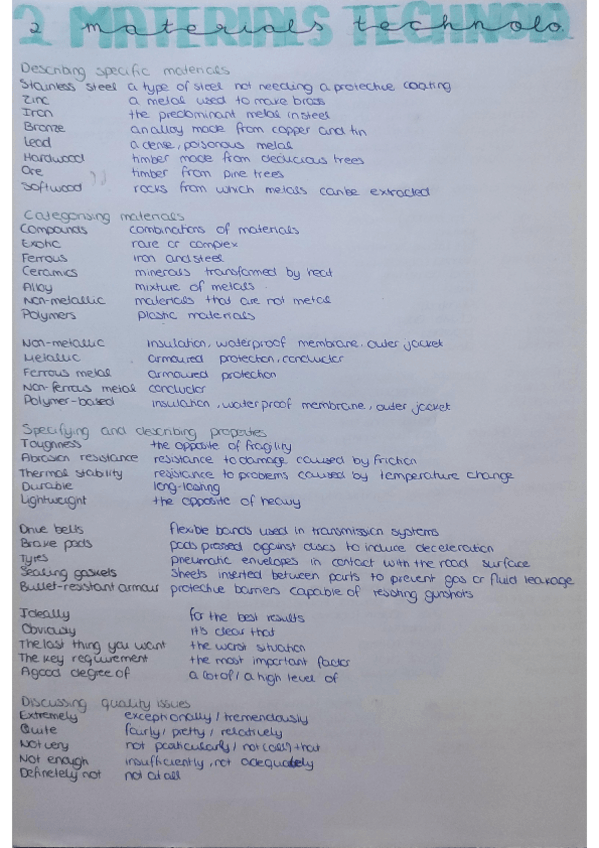 2 MATERIALS TECHNOLO
materials technolo
Describing specific materials
Stainless steel a type of steel not needing a protective coating
Zinc a metal used to make brass
Iron the predominant metal in steel
Bronze an alloy made from copper and tin
Lead a dense, poisonous metal
Hardwood timber made from deciduous trees
Ore timber from pine trees
Softwood rocks from which metals can be extracted
Categorising materials
Compounds combinations of materials
Exotic rare or complex
Ferrous iron and steel
Ceramics minerals transformed by heat
Alloy mixture of metals
Non-metallic materials that are not metal
Polymers plastic materials
Non-metallic insulation, waterproof membrane, outer jacket
Metallic armoured protection, conductor
Ferrous metal armoured protection
Non-ferrous metal conductor
Polymer-based insulation, waterproof membrane, outer jacket
Specifying and describing properties
Toughness the opposite of fragility
Abrasion resistance resistance to damage caused by friction
Thermal stability resistance to problems caused by temperature change
Durable long-lasting
Lightweight the opposite of heavy
Drive belts flexible bands used in transmission systems
Brake pads pads pressed against discs to induce deceleration
Tyres pneumatic envelopes in contact with the road surface
Sealing gaskets sheets inserted between parts to prevent gas or fluid leakage
Bullet-resistant armour protective barriers capable of resisting gunshots
Ideally for the best results
Obviously it's clear that
The last thing you want the worst situation
The key requirement the most important factor
A good degree of a lot of / a high level of
Discussing quality issues
Extremely exceptionally / tremendously
Quite fairly / pretty / relatively
Not very not particularly / not (all) that
Not enough insufficiently, not adequately
Definetely not not at all